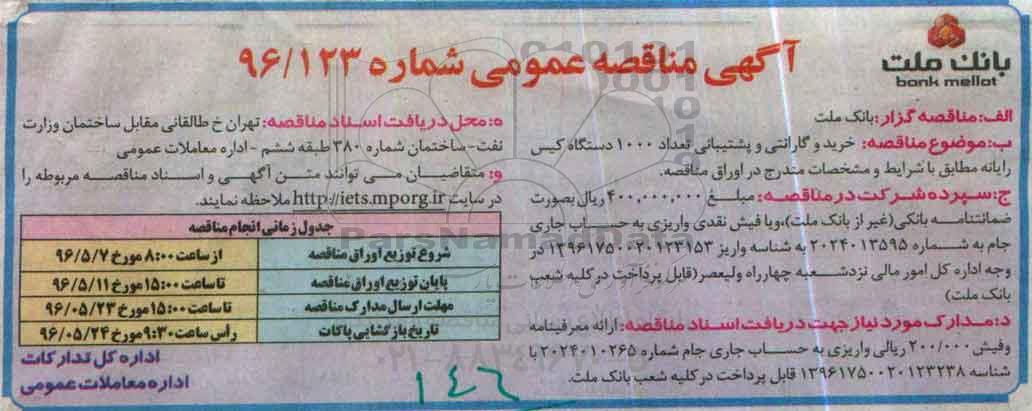 بانک ملت
bank mellat
آگهی مناقصه عمومی شماره ۹۶/۱۲۳
الف: مناقصه گزار: بانک ملت
ب: موضوع مناقصه: خرید و گارانتی و پشتیبانی تعداد ۱۰۰۰ دستگاه کیس
رایانه مطابق با شرایط و مشخصات مندرج در اوراق مناقصه.
ج: سپرده شرکت در مناقصه: مبلغ ۴۰۰,۰۰۰,۰۰۰ ریال بصورت
ضمانتنامه بانکی (غیر از بانک ملت)، ویا فیش نقدی واریزی به حساب جاری
جام به شماره ۲۰۲۴۰۱۳۵۹۵ به شناسه واریز ۱۳۹۶۱۷۵۰۰۲۰۱۲۳۱۵۳ در
وجه اداره کل امور مالی نزد شعبه چهارراه ولیعصر (قابل پرداخت در کلیه شعب
بانک ملت)
د: مدارک مورد نیاز جهت دریافت اسناد مناقصه: ارائه معرفینامه
و فیش ۲۰۰/۰۰۰ ریالی واریزی به حساب جاری جام شماره ۲۰۲۴۰۱۰۲۶۵ با
شناسه ۱۳۹۶۱۷۵۰۰۲۰۱۲۳۲۳۸ قابل پرداخت در کلیه شعب بانک ملت.
ه: محل دریافت اسناد مناقصه: تهران خ طالقانی مقابل ساختمان وزارت
نفت- ساختمان شماره ۳۸۰ طبقه ششم - اداره معاملات عمومی
و: متقاضیان می توانند متن آگهی و اسناد مناقصه مربوطه را
در سایت http://iets.mporg.ir ملاحظه نمایند.
جدول زمانی انجام مناقصه
شروع توزیع اوراق مناقصه از ساعت ۸:۰۰ مورخ ۹۶/۵/۷
پایان توزیع اوراق مناقصه تا ساعت ۱۵:۰۰ مورخ ۹۶/۵/۱۱
مهلت ارسال مدارک مناقصه تا ساعت ۱۵:۰۰ مورخ ۹۶/۰۵/۲۳
تاریخ بازگشایی پاکات رأس ساعت ۹:۳۰ مورخ ۹۶/۰۵/۲۴
اداره کل تدارکات
اداره معاملات عمومی